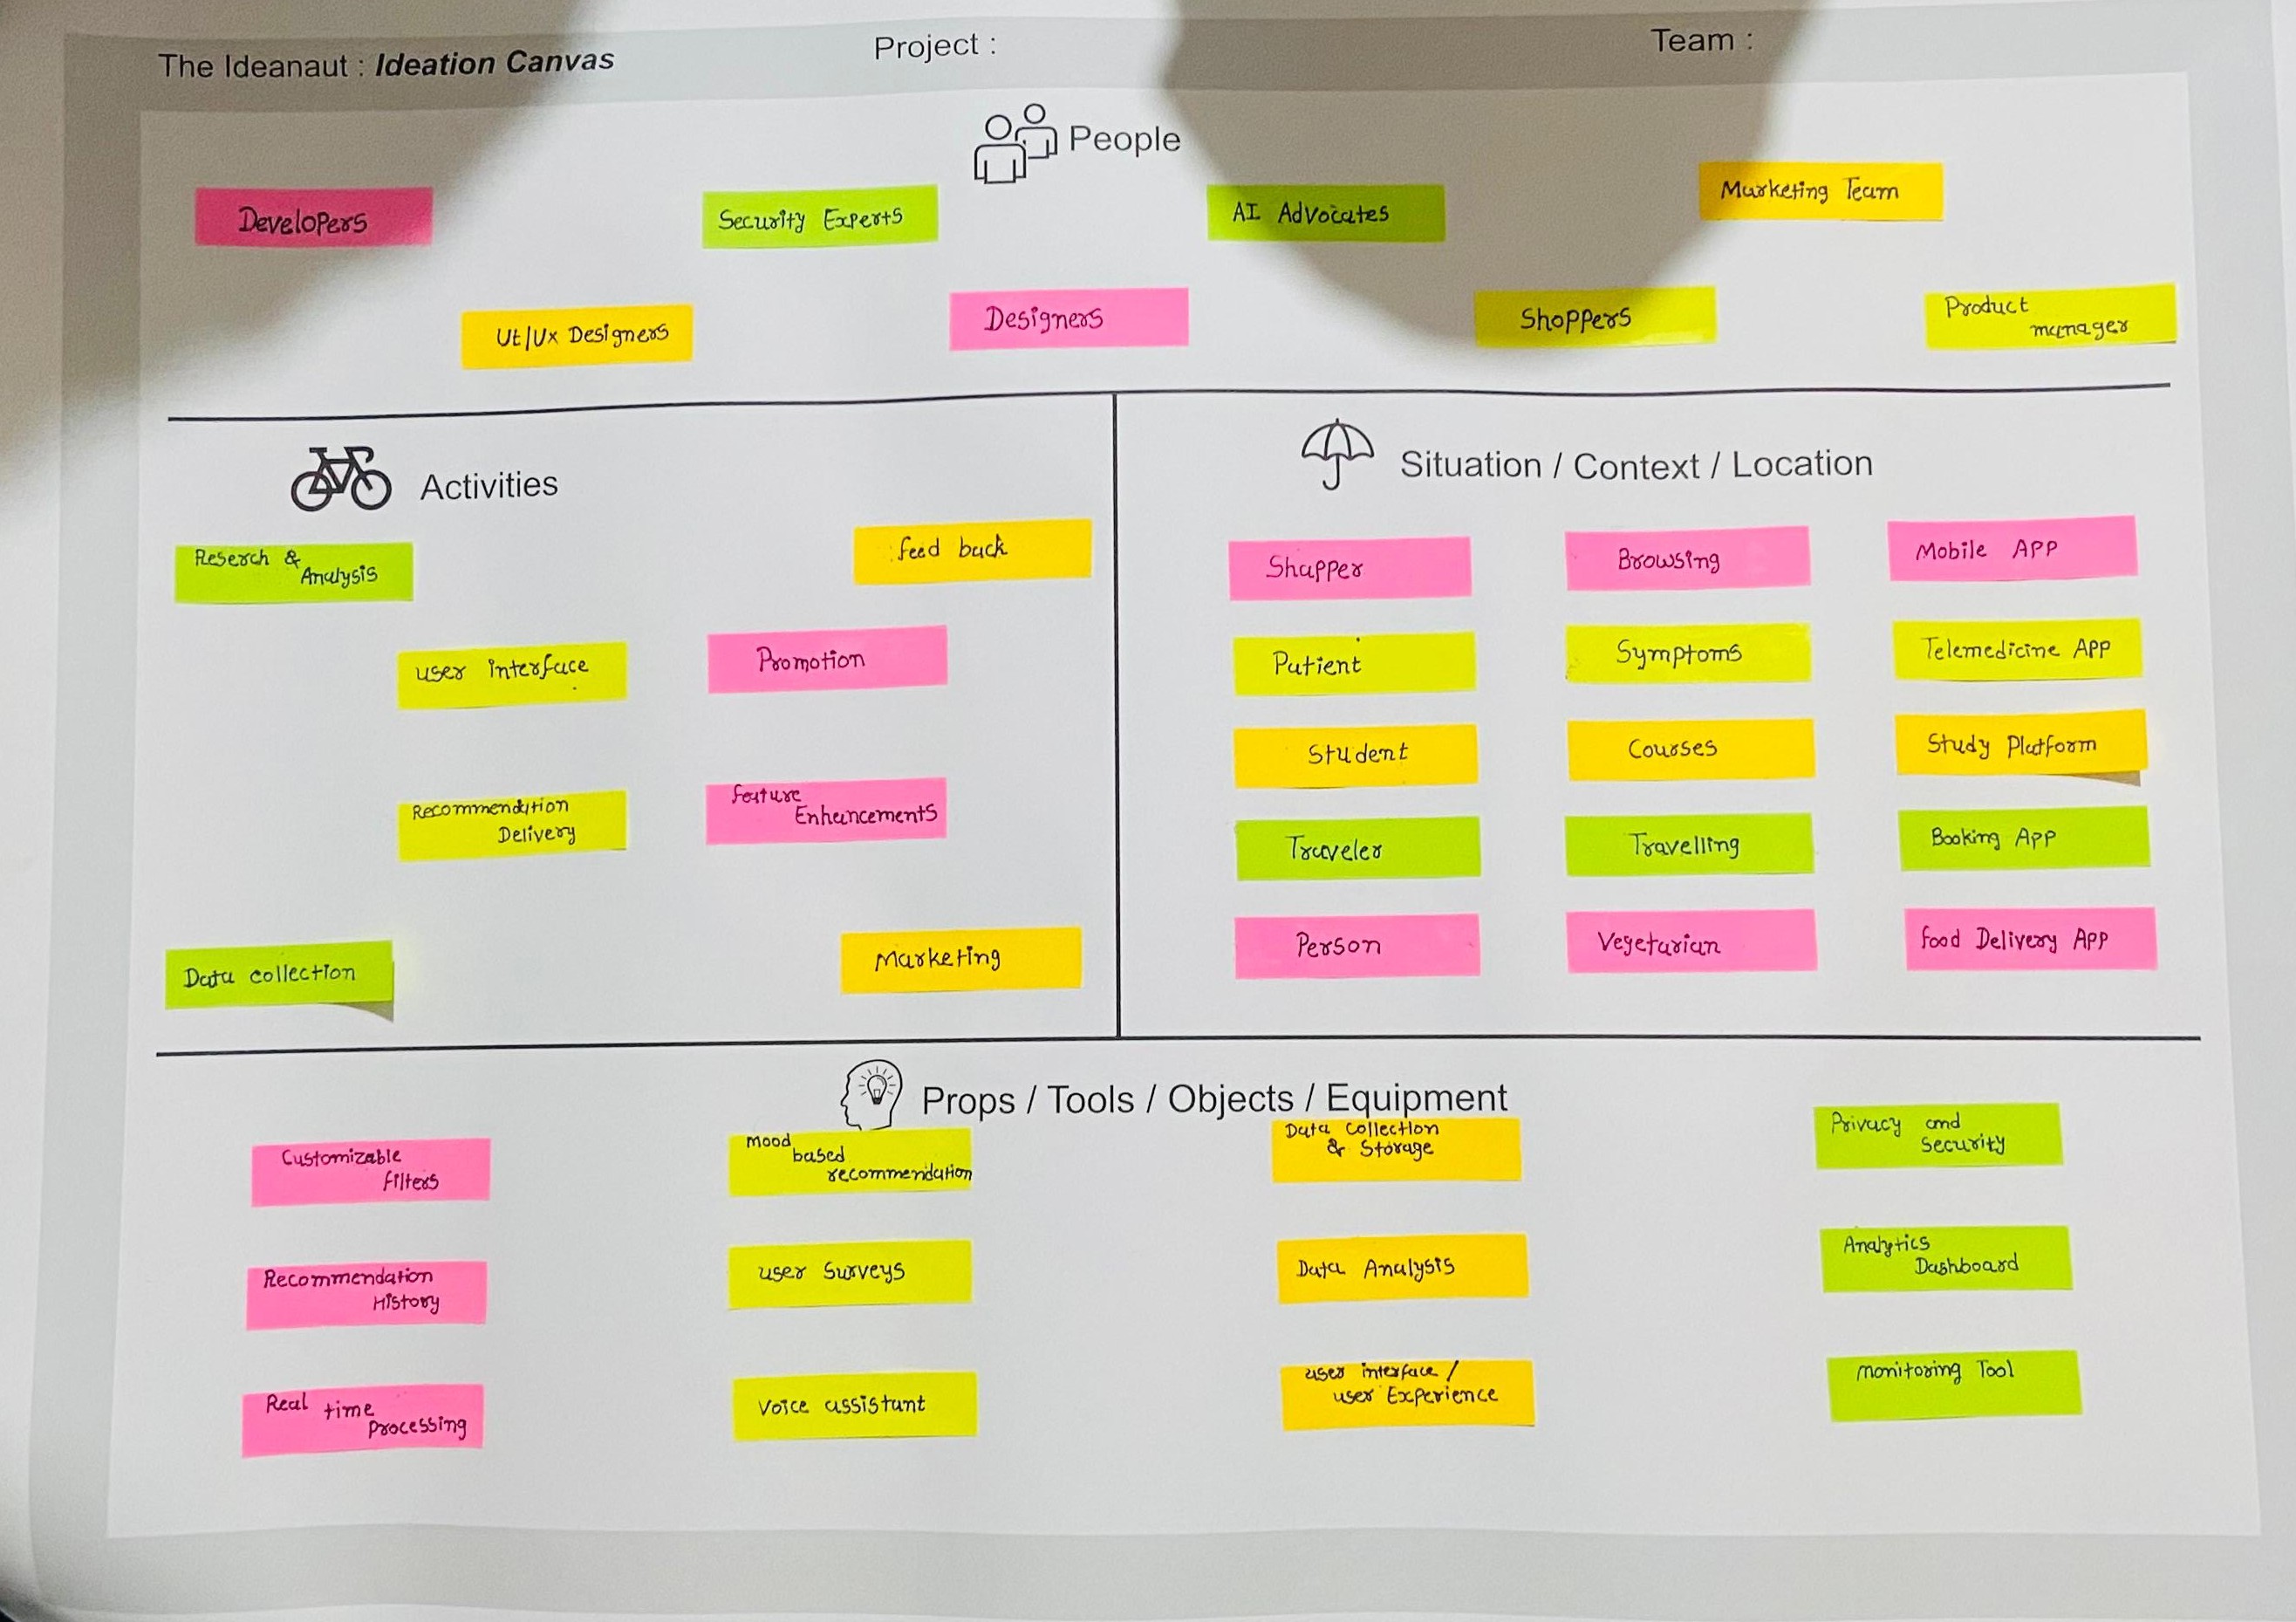 The Ideanaut : Ideation Canvas
Project :
Team :
People
Developers
Security Experts
AI Advocates
Marketing Team
UI/Ux Designers
Designers
Shoppers
Product
manager
Activities
Reserch &
Analysis
feed back
user interface
Promotion
Recommendation
Delivery
feature
Enhancements
Data collection
Marketing
Situation / Context / Location
Shapper
Browsing
Mobile APP
Patient
Symptoms
Telemedicine APP
Student
Courses
Study Platform
Traveler
Travelling
Booking App
Person
Vegetarian
food Delivery APP
Props / Tools / Objects / Equipment
Customizable
filters
mood
based
recommendation
Data Collection
& Storage
Privacy and
Security
Recommendation
History
user surveys
Data Analysis
Analytics
Dashboard
Real time
processing
Voice assistant
user interface /
user Experience
monitoring Tool